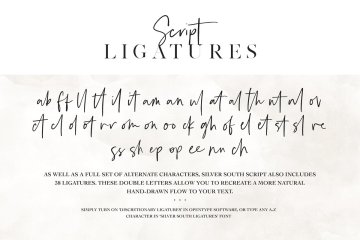 Script
LIGATURES
ab ff ll tl il it am an ul at al th nt al ov
ct cl d ot rr om on oo ck gh of el et st sl re
ss sh ep op ee nn ch
AS WELL AS A FULL SET OF ALTERNATE CHARACTERS, SILVER SOUTH SCRIPT ALSO INCLUDES
38 LIGATURES. THESE DOUBLE LETTERS ALLOW YOU TO RECREATE A MORE NATURAL
HAND-DRAWN FLOW TO YOUR TEXT.
SIMPLY TURN ON 'DISCRETIONARY LIGATURES' IN OPENTYPE SOFTWARE, OR TYPE ANY A-Z
CHARACTER IN 'SILVER SOUTH LIGATURES' FONT